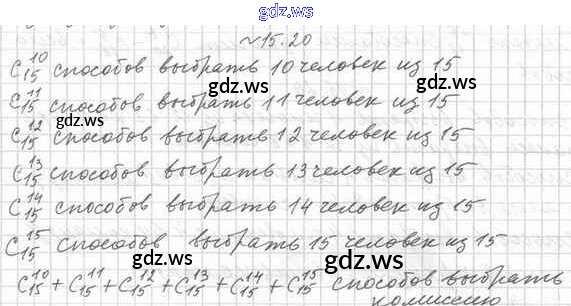 gdz.ws
№15.20
C₁₅¹⁰ способов выбрать 10 человек из 15
C₁₅¹¹ способов выбрать 11 человек из 15
gdz.ws
gdz.ws
C₁₅¹² способов выбрать 12 человек из 15
C₁₅¹³ способов выбрать 13 человек из 15
C₁₅¹⁴ способов выбрать 14 человек из 15
gdz.ws
C₁₅¹⁵ способов выбрать 15 человек из 15
C₁₅¹⁰ + C₁₅¹¹ + C₁₅¹² + C₁₅¹³ + C₁₅¹⁴ + C₁₅¹⁵ способов выбрать
gdz.ws
комиссию